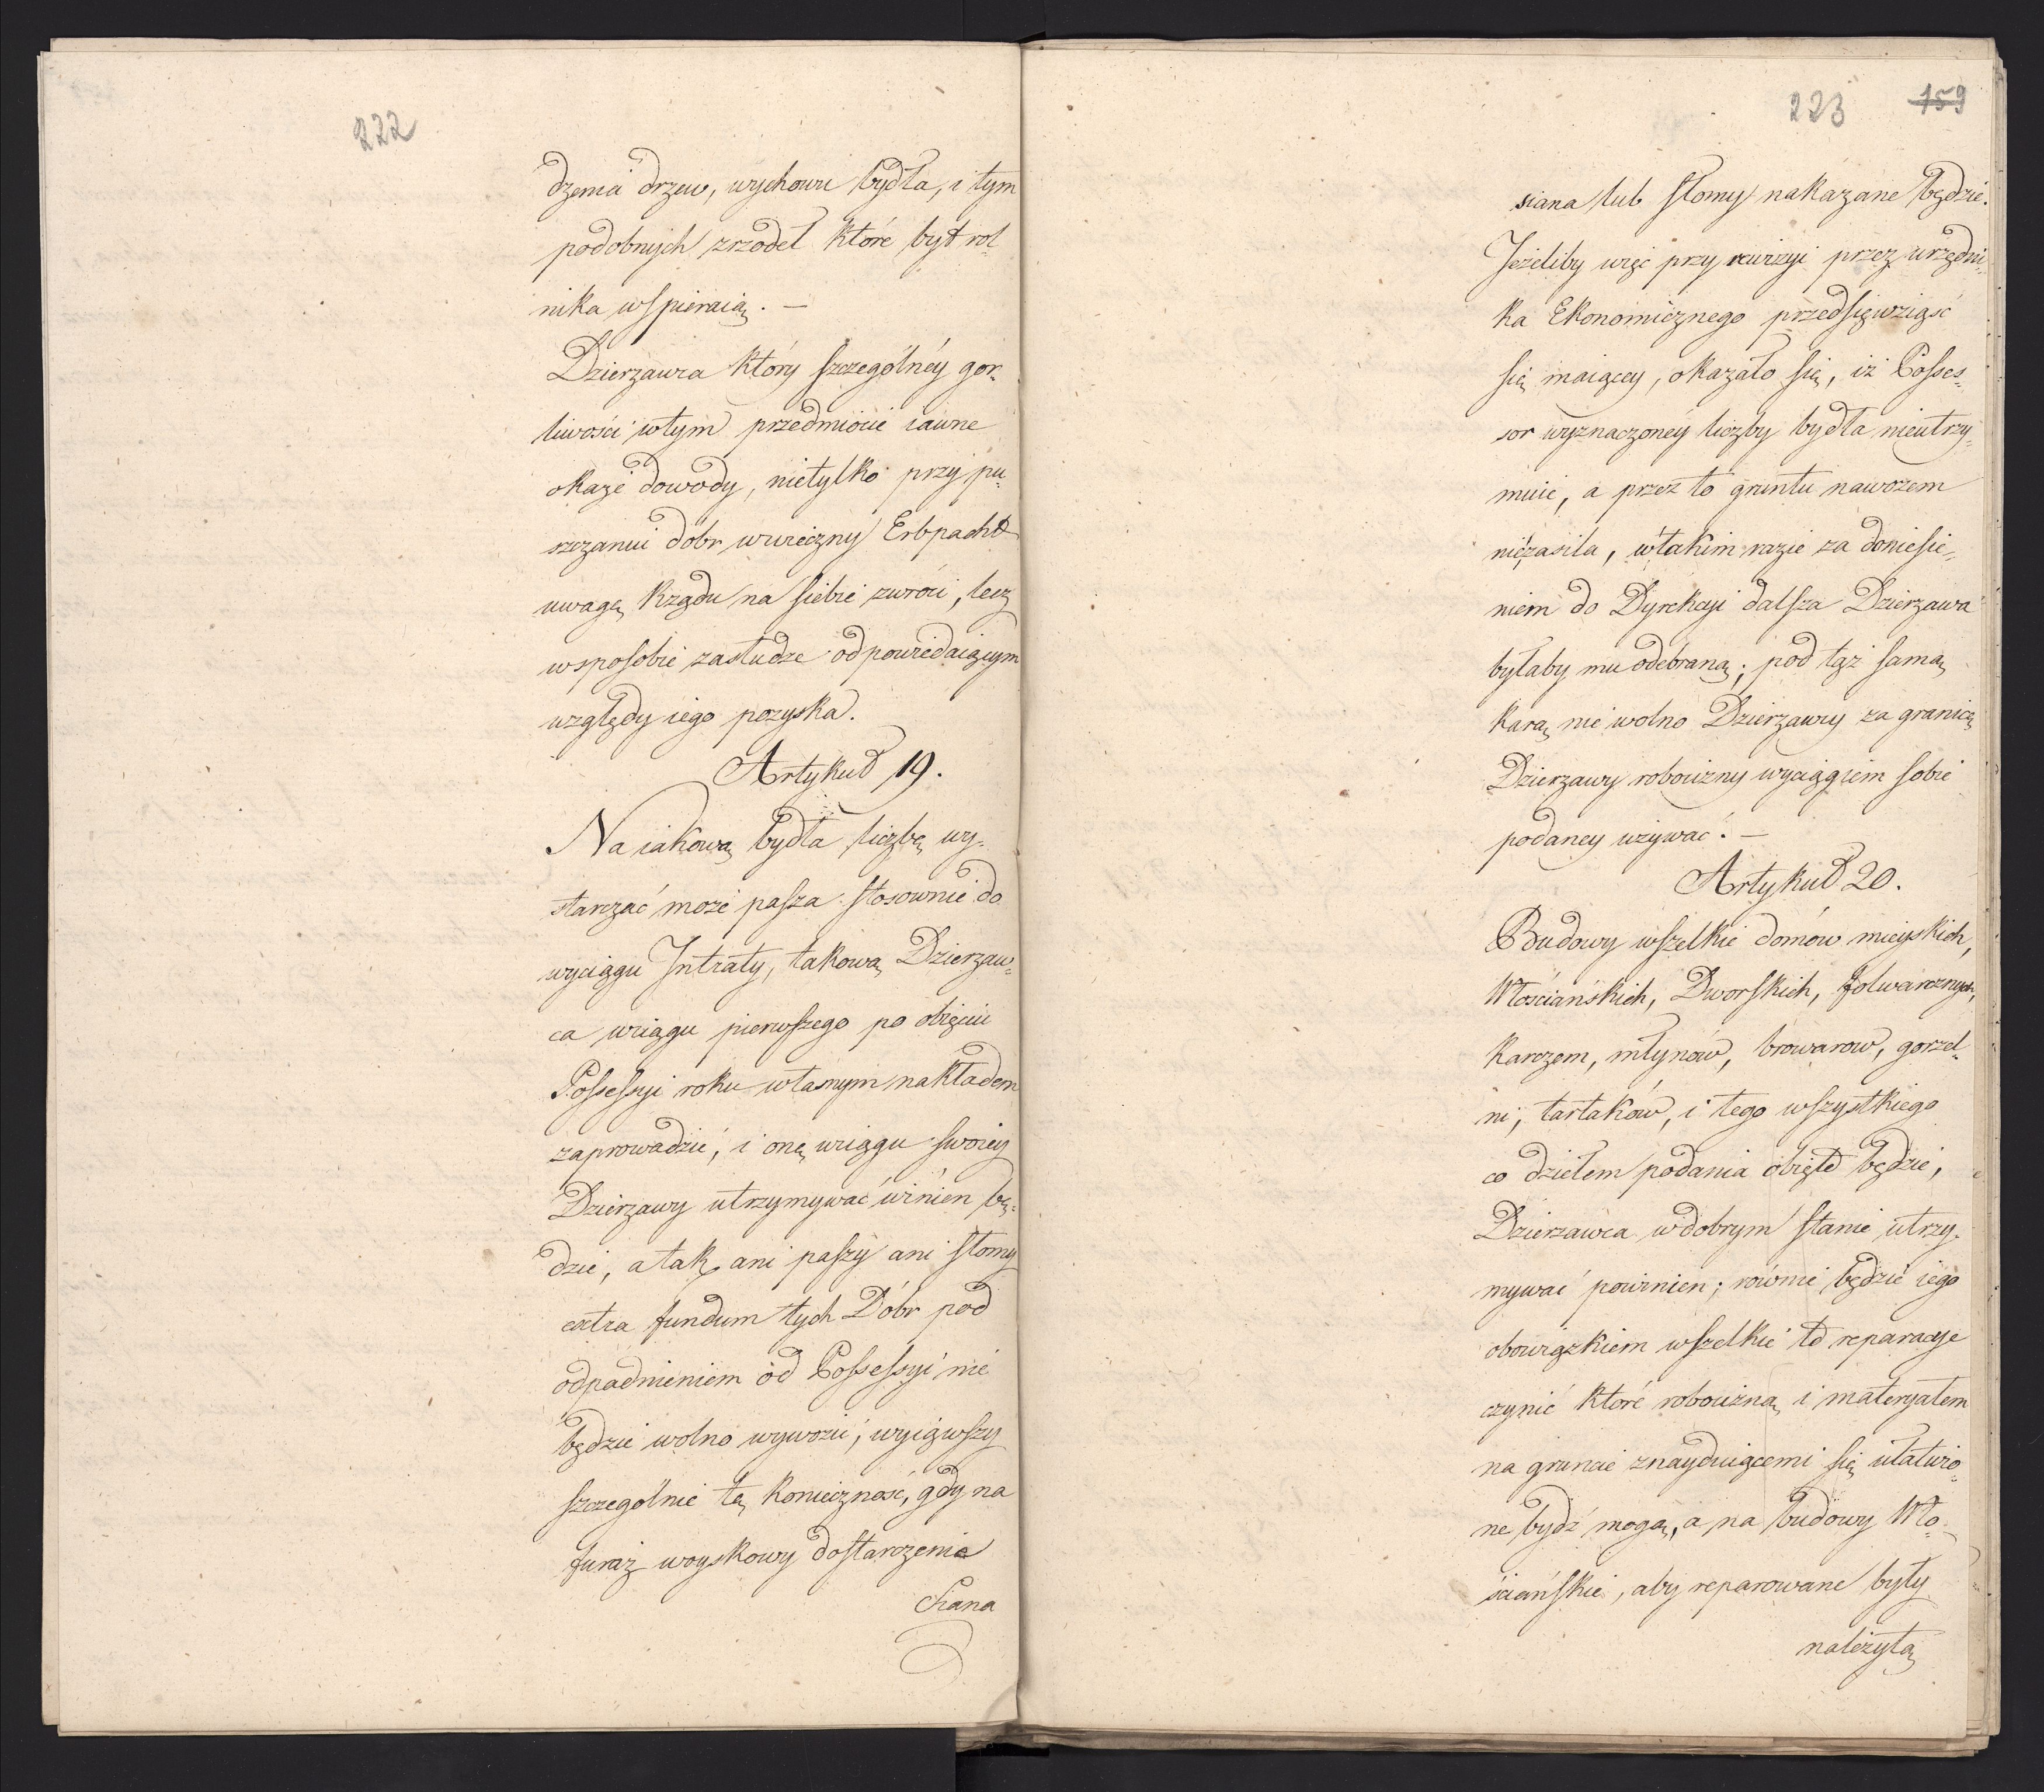 222
dzenia drzew, wychowu bydła, i tym
podobnych zrzodeł które byt rol¬
nika wspieraią. —
Dzierzawca który szczególnéy gor¬
liwości wtym przedmiocie iawne
okaże dowody, nietylko przy pu¬
szczaniu dóbr wwieczny Erbpacht
uwagę Rządu na siebie zwróci, lecz
wsposobie zasłudze odpowiedaiącym
względy iego pozyska.
Artykuł 19.
Na iakową bydła liczbę wy¬
starczać może pasza stosownie do
wyciągu Intraty, takową Dzierzaw¬
ca wciągu pierwszego po obięciu
Possessyi roku własnym nakładem
zaprowadzić, i onę wciągu swoiéy
Dzierzawy utrzymywać winien bę¬
dzie, a tak ani paszy ani słomy
extra fundum tych Dóbr pod
odpadnieniem od Possessyi nie
będzie wolno wywozić, wyiąwszy
szczególnie tę konieczność, gdy na
furaż woyskowy dostarczenie
Siana
223 159
siana lub słomy nakazane będzie.
Jeżeliby więc przy rewizyi przez urzędni¬
ka Ekonomicznego przedsięwziąść
się maiącey, okazało się, iż Posses¬
sor wyznaczonéy liczby bydła nieutrzy¬
muie, a przez to gruntu nawozem
niezasila, wtakim razie za doniesie¬
niem do Dyrekcyi dalsza Dzierzawa
byłaby mu odebraną; pod tąż samą
karą nie wolno Dzierzawcy za granicę
Dzierzawy robocizny wyciągiem sobie
podaney używać. —
Artykuł 20.
Budowy wszelkie domów mieyskich,
Włościańskich, Dworskich, folwarcznych,
karczem, młynów, browarow, gorzel¬
ni, tartaków, i tego wszystkiego
co dziełem podania obięte będzie,
Dzierzawca wdobrym stanie utrzy¬
mywać powinien; rownie będzie iego
obowiązkiem wszelkie te reparacye
czynić które robocizną i materyałem
na gruncie znayduiącemi się ułatwio¬
ne bydź mogą, a na budowy Wło¬
ściańskie, aby reparowane były
należytą